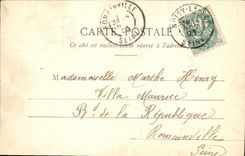 CARTE POSTALE
Ce côté est exclusivement réservé à l'adresse
ROMAINVILLE
SEINE
NOISY-LE-SEC
Mademoiselle Marthe Henry
Villa Maurice
Bd de la République
Romainville
Seine